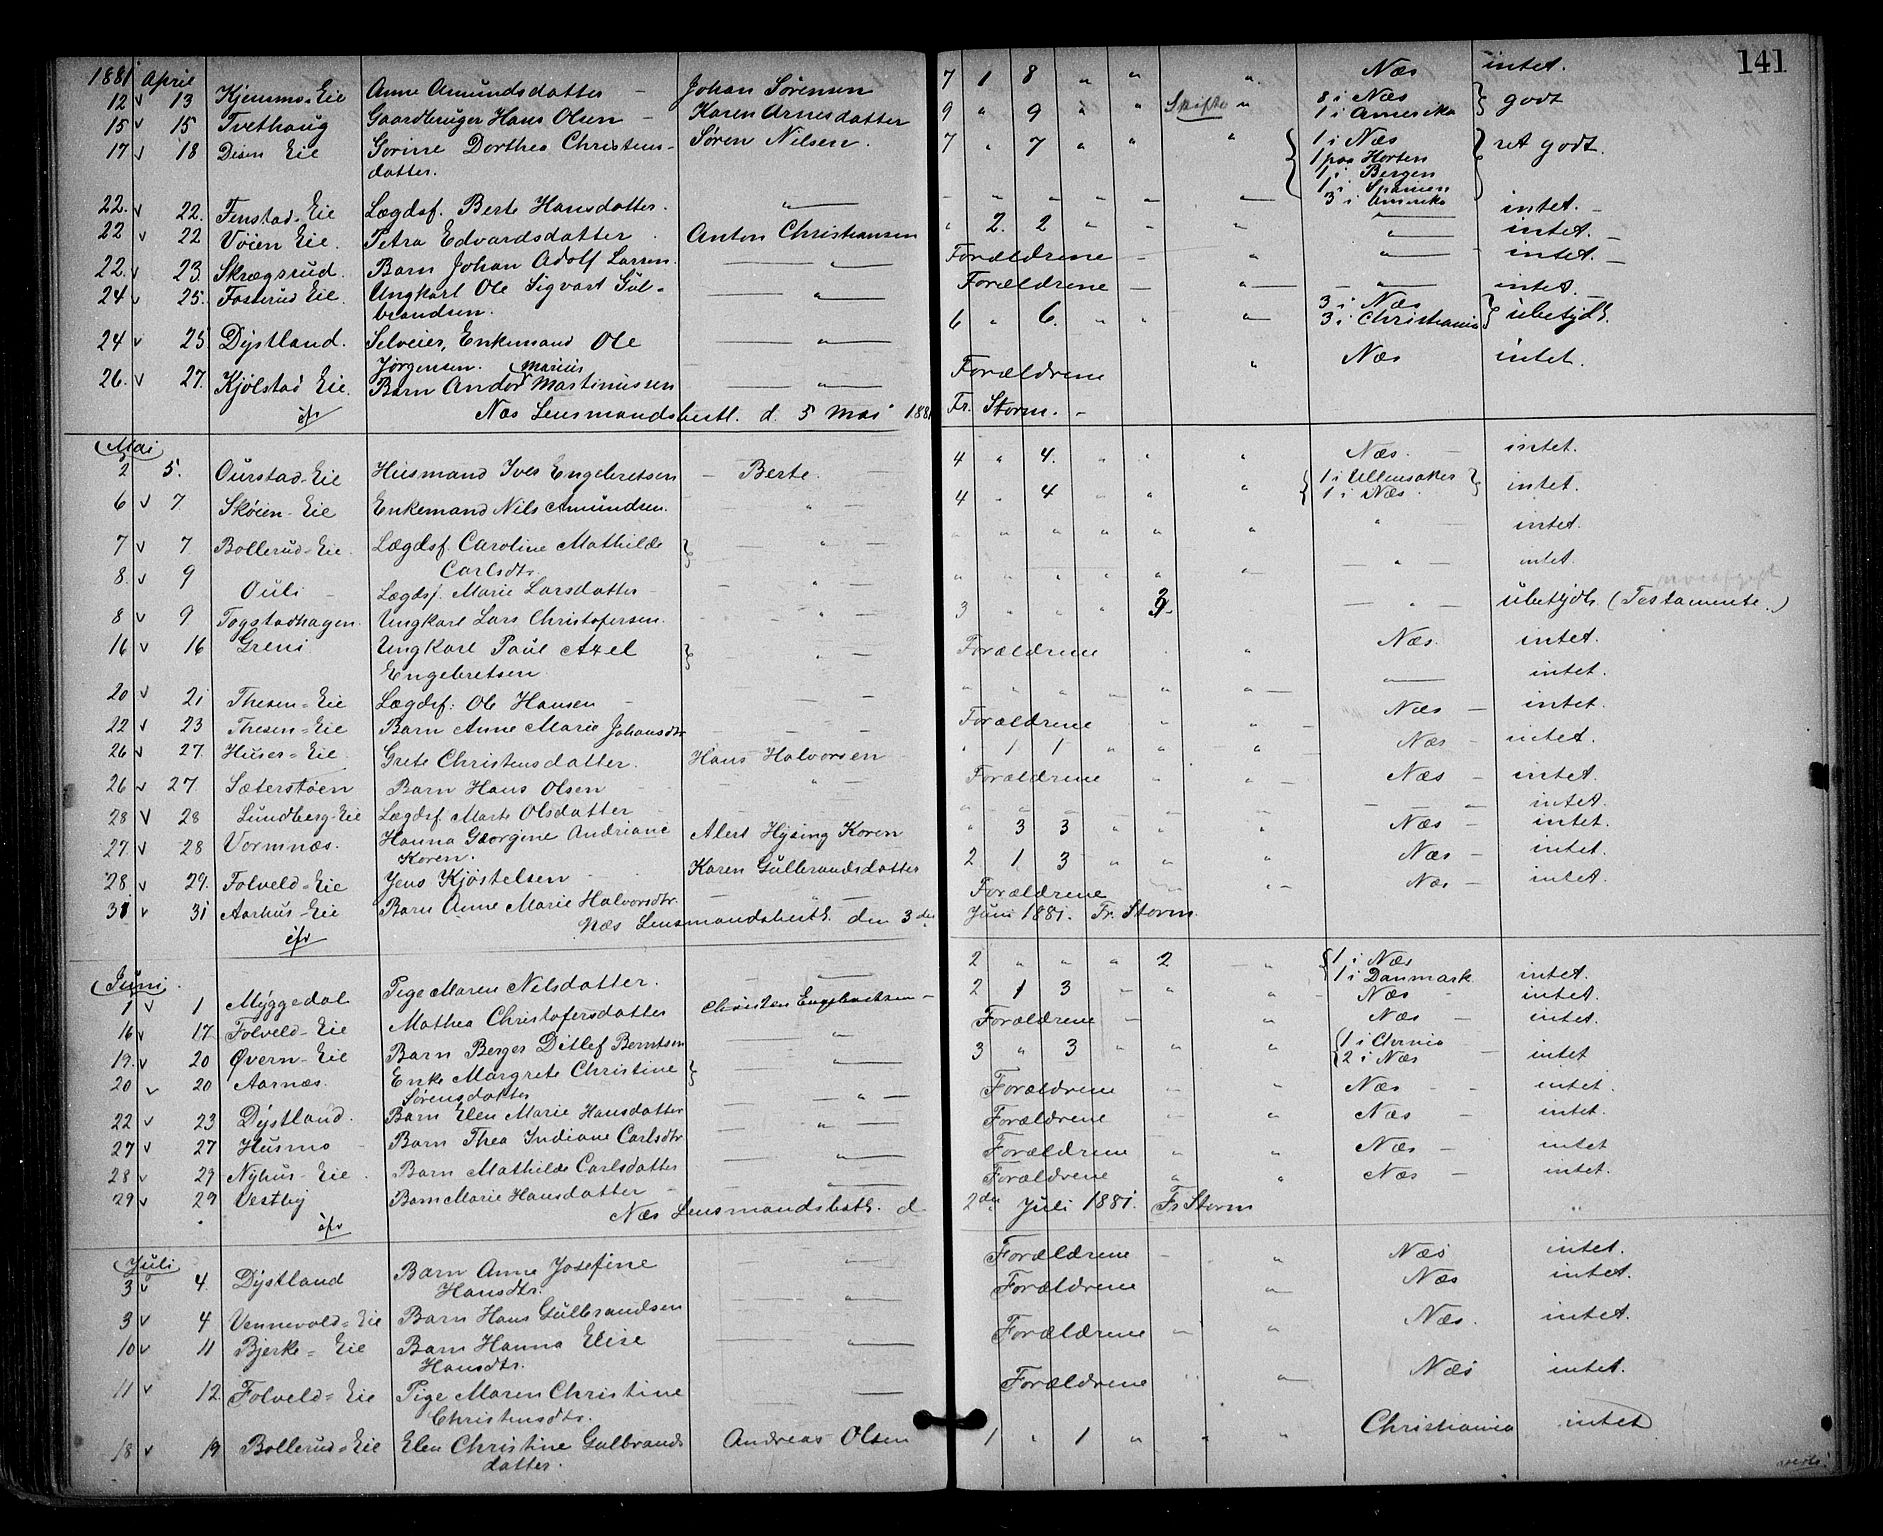 141
1881 April
12 v 13 Kjensmo-Eie Anne Amundsdatter — Johan Sørensen 7 1 8 " " " Næs intet.
15 v 15 Tvethaug Gaardbruger Hans Olsen — Karen Arnesdatter 9 " 9 " " Skifte " 8 i Næs
1 i Amerika } godt
17 v 18 Disen Eie Gorine Dorthea Christens- Søren Nilsen. 7 " 7 " " " { 1 i Næs
datter. 1 paa Horten
1 i Bergen
1 i Spanien
3 i Amerika } ret godt.
22. v 22. Fenstad-Eie Lægdsf. Berte Hansdatter. " " " " " " " " intet. —
22 v 22 Vøien Eie. Petra Edvardsdatter Anton Christiansen " 2. 2 " " " " intet. —
22. v 23. Skrægsrud. Barn Johan Adolf Larsen. — " — Forældrene — " " intet. —
24 v 25. Fosserud Eie. Ungkarl Ole Sigvart Gul- — " — Forældrene — " " intet.
brandsen.
24 v 25 Dystland. Selveier, Enkemand Ole — " — 6 " 6. " " " 3 i Næs
3 i Christiania } ubetydl.
Jørgensen.
26. v 27. Kjølstad Eie. Barn Andor Marius Martinussen — " — Forældrene " Næs intet.
ifr Næs Lensmandsbestl. d. 5 Mai 1881 Fr. Storm. —
Mai
2 5. Ourstad-Eie Husmand Iver Engebretsen — Berte. 4 " 4. " " " Næs. — intet.
6 v 7 Skøien-Eie Enkemand Nils Amundsen. — " — 4 " 4 " " " { 1 i Ullensaker
1 i Næs. } intet.
7 v 7 Bollerud-Eie. Lægdsf. Caroline Mathilde } — " — " " " " " " " — intet.
Carlsdtr.
8. v 9 Ouli — Lægdsf. Marie Larsdatter — — " — " " " " " " — " — intet.
8 v 9 Togstadhagen Ungkarl Lars Christofersen. — " — 3 " " " 3 — " — ubetydl. (Testamente.)
16 v 16 Greni Ungkarl Paul Axel } — " — Forældrene " Næs. intet.
Engebretsen.
20 v 21 Thesen-Eie Lægdsf. Ole Hansen — " " " " " " — " — intet.
22 v 23 Thesen-Eie Barn Anne Marie Johansdtr. — Forældrene " Næs — intet.
26 v 27. Huser-Eie Grete Christensdatter. Hans Halvorsen " 1 1 " " " Næs — intet.
26 v 27. Sæterstøen Barn Hans Olsen — " Forældrene " " Næs — intet.
28 v 28 Lundberg-Eie Lægdsf Marte Olsdatter — " — — — — — " intet.
27. v 28 Vormnæs. Hanna Georgine Andriane Alert Hysing Koren " 3 3 " " " Næs — intet.
Koren.
28. v 29. Folveld-Eie Jens Kjøstelsen — Karen Gulbrandsdatter 2 1 3 " " " Næs — intet.
31 v 31 Aarhus-Eie Barn Anne Marie Halvorsdtr. — " — Forældrene " — Næs — intet.
ifr Næs Lensmandsbestl. den 3die Juni 1881. Fr. Storm.
Juni
1 v 1 Myggedal Pige Maren Nilsdatter. — " — 2 " " " 2 — " { 1 i Næs
1 i Danmark intet.
16 v 17 Folveld-Eie Mathea Christofersdatter Christen Engebretsen — 2 1 3 " " " Næs — intet.
19. v 20 Øvern-Eie Barn Berger Ditlef Berntsen — " — Forældrene — " Næs — intet.
20 v 20 Aarnæs. Enke Margrete Christine } — " — 3 " 3 " " " { 1 i Chrnia
2 i Næs — intet
Sørensdatter
22 v 23 Dystland. Barn Elen Marie Hansdatter — " — Forældrene — " Næs — intet.
27 v 27 Husmo Barn Thea Indiane Carlsdtr. — " — Forældrene — " Næs — intet.
28 v 29 Nyhus-Eie Barn Mathilde Carlsdatter — " — Forældrene " " Næs — intet
29 v 29 Vestby Barn Marie Hansdatter — — " — Forældrene " " Næs — intet.
ifr Næs Lensmandsbestl. d. 2den Juli 1881. Fr Storm
Juli
3 v 4 Dystland Barn Anne Josefine — " — Forældrene — " Næs intet.
Hansdtr.
3 v 4 Vennevold-Eie Barn Hans Gulbrandsen — " — Forældrene " Næs intet.
10 v 11 Bjerke-Eie Barn Hanna Elise — " — Forældrene — " Næs. intet.
Hansdtr.
11 v 12 Folveld-Eie Pige Maren Christine — Forældrene " " Næs intet.
Christensdtr.
18 v 19 Bollerud-Eie Elen Christine Gulbrands Andreas Olsen 1 " 1 " " " Christiania intet
datter.